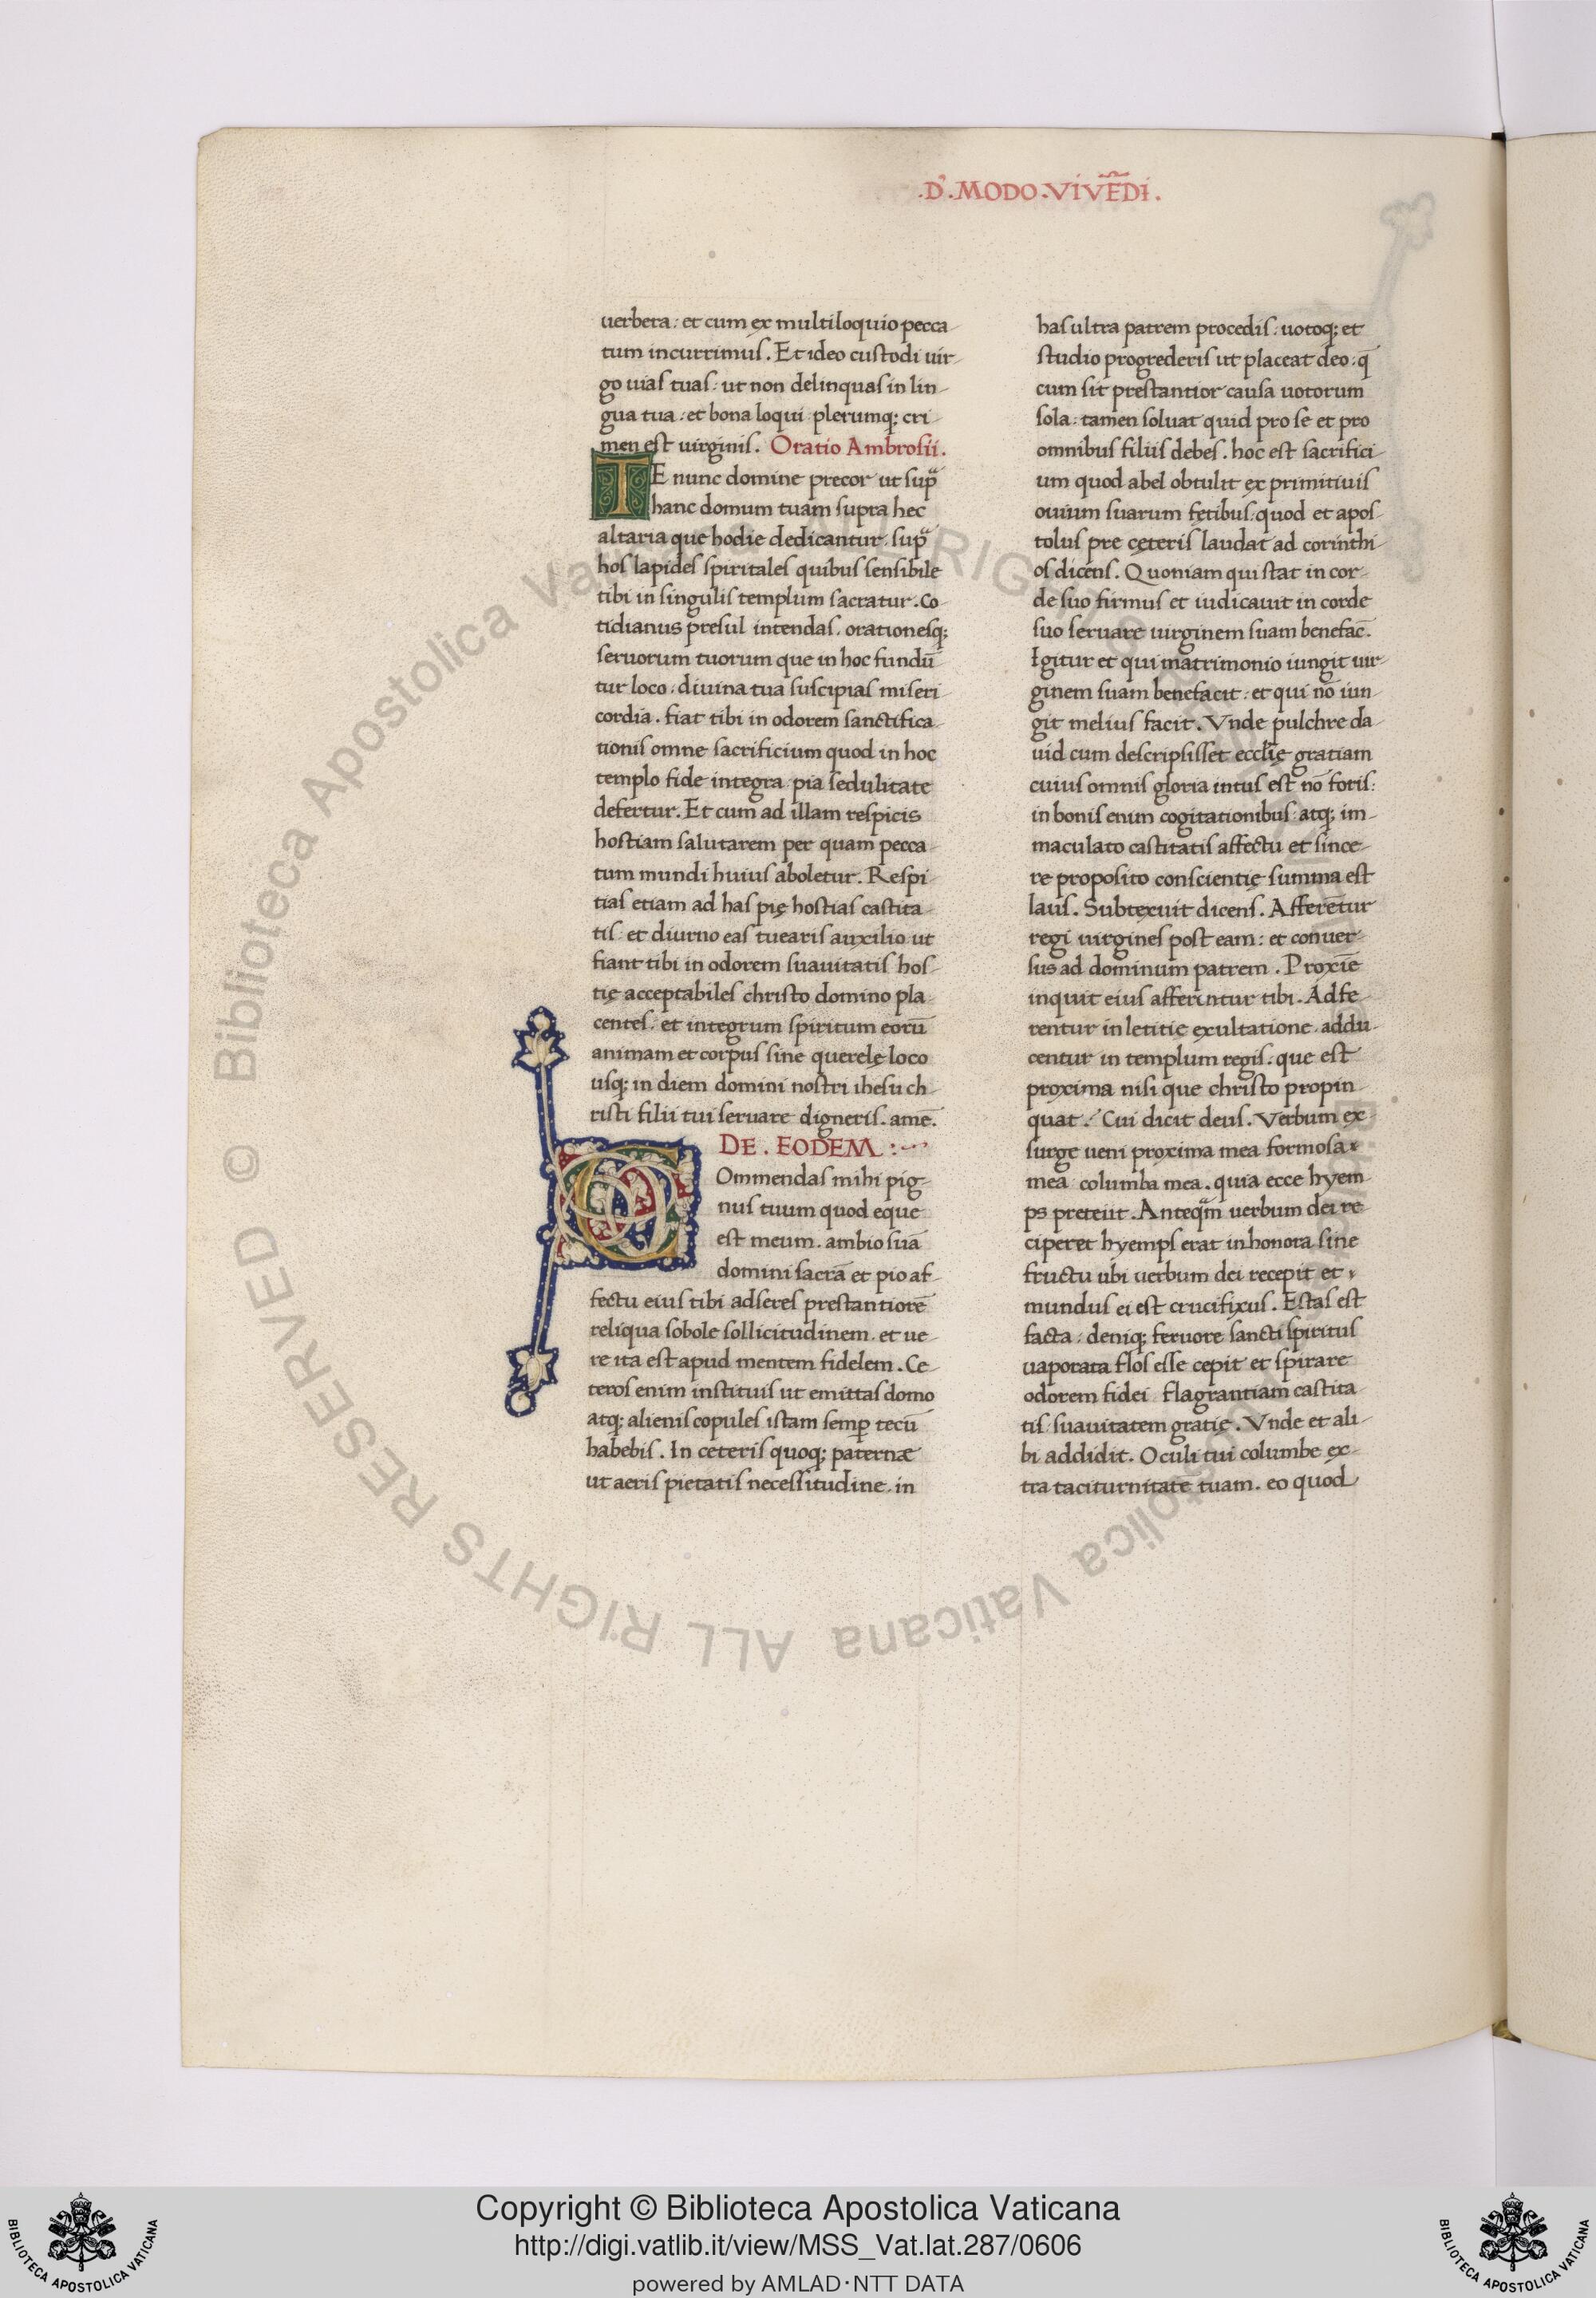 .D'. MODO. VIVĒDI.
uerbera: et cum ex multiloquio pecca-
tum incurrimus. Et ideo custodi uir-
go uias tuas: ut non delinquas in lin-
gua tua: et bona loqui plerumq; cri-
men est uirginis. Oratio Ambrosii.
TE nunc domine precor ut sup̃
hanc domum tuam supra hec
altaria que hodie dedicantur. sup̃
hos lapides spiritales quibus sensibile
tibi in singulis templum sacratur. Co-
tidianus presul intendas. orationesq;
seruorum tuorum que in hoc fundū-
tur loco: diuina tua suscipias miseri-
cordia. fiat tibi in odorem sanctifica-
tionis omne sacrificium quod in hoc
templo fide integra pia sedulitate
defertur. Et cum ad illam respicis
hostiam salutarem per quam pecca-
tum mundi huius aboletur. Respi-
tias etiam ad has pię hostias castita-
tis: et diurno eas tuearis auxilio ut
fiant tibi in odorem suauitatis hos-
tię acceptabiles christo domino pla-
centes: et integrum spiritum eorū
animam et corpus sine querelę loco
usq; in diem domini nostri ihesu ch-
risti filii tui seruare digneris. amē.
DE. EODEM :~
COmmendas mihi pig-
nus tuum quod eque
est meum. ambio suā
domini sacrā et pio af-
fectu eius tibi adseres prestantiorē
reliqua sobole sollicitudinem. et ue-
re ita est apud mentem fidelem. Ce-
teros enim instituis ut emittas domo
atq; alienis copules istam semp̱ tecū
habebis. In ceteris quoq; paternæ
ut aeris pietatis necessitudine. in
has ultra patrem procedis: uotoq; et
studio progrederis ut placeat deo. q̄
cum sit prestantior causa uotorum
sola: tamen soluat quid pro se et pro
omnibus filiis debes. hoc est sacrifici-
um quod abel obtulit ex primitiuis
ouium suarum fetibus: quod et apos-
tolus pre ceteris laudat ad corinthi-
os dicens. Quoniam qui stat in cor-
de suo firmus et iudicauit in corde
suo seruare uirginem suam benefac̄.
Igitur et qui matrimonio iungit uir-
ginem suam benefacit: et qui nō iun-
git melius facit. Vnde pulchre da-
uid cum descripsisset eccl̄ię gratiam
cuius omnis gloria intus est nō foris:
in bonis enim cogitationibus: atq; im-
maculato castitatis affectu et since-
re proposito conscientię summa est
laus. Subtexuit dicens. Afferētur
regi uirgines post eam: et conuer-
sus ad dominum patrem. Proxiē
inquit eius afferuntur tibi. Adfe-
rentur in letitię exultatione. addu-
centur in templum regis. que est
proxima nisi que christo propin-
quat. Cui dicit deus. Verbum ex-
surge ueni proxima mea formosa
mea columba mea. quia ecce hyem-
ps preteriit. Anteq̃m uerbum dei re-
ciperet hyemps erat inhonora sine
fructu ubi uerbum dei recepit et
mundus ei est crucifixus. Estas est
facta: deniq; feruore sancti spiritus
uaporata flos esse cepit et spirare
odorem fidei flagrantiam castita-
tis: suauitatem gratię. Vnde et ali-
bi addidit. Oculi tui columbe ex-
tra taciturnitate tuam. eo quod
© Biblioteca Apostolica Vaticana ALL RIGHTS RESERVED
Copyright © Biblioteca Apostolica Vaticana
http://digi.vatlib.it/view/MSS_Vat.lat.287/0606
powered by AMLAD·NTT DATA
BIBLIOTECA APOSTOLICA VATICANA
BIBLIOTECA APOSTOLICA VATICANA